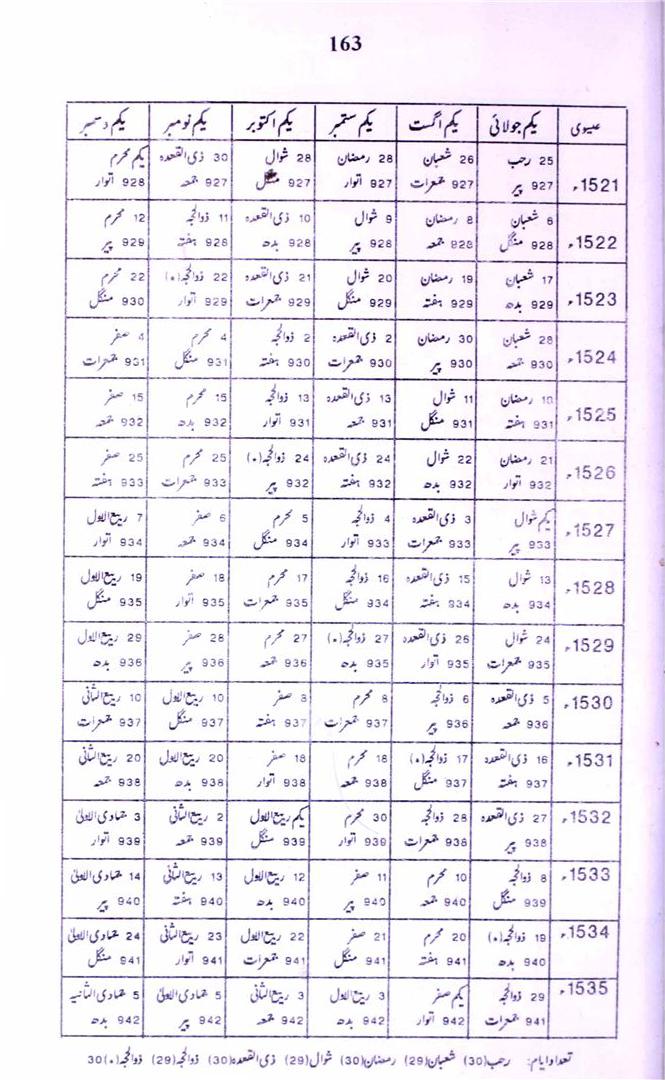 163
عیسوی یکم جولائی یکم اگست یکم ستمبر یکم اکتوبر یکم نومبر یکم دسمبر
1521ء 25 رجب 26 شعبان 28 رمضان 28 شوال 30 ذی القعدہ یکم محرم
927 پیر 927 جمعرات 927 اتوار 927 منگل 927 جمعہ 928 اتوار
1522ء 6 شعبان 8 رمضان 9 شوال 10 ذی القعدہ 11 ذوالحجہ 12 محرم
928 منگل 928 جمعہ 928 پیر 928 بدھ 928 ہفتہ 929 پیر
1523ء 17 شعبان 19 رمضان 20 شوال 21 ذی القعدہ 22 ذوالحجہ(٭) 22 محرم
929 بدھ 929 ہفتہ 929 منگل 929 جمعرات 929 اتوار 930 منگل
1524ء 28 شعبان 30 رمضان 2 ذی القعدہ 2 ذوالحجہ 4 محرم 4 صفر
930 جمعہ 930 پیر 930 جمعرات 930 ہفتہ 931 منگل 931 جمعرات
1525ء 10 رمضان 11 شوال 13 ذی القعدہ 13 ذوالحجہ 15 محرم 15 صفر
931 ہفتہ 931 منگل 931 جمعہ 931 اتوار 932 بدھ 932 جمعہ
1526ء 21 رمضان 22 شوال 24 ذی القعدہ 24 ذوالحجہ(٭) 25 محرم 25 صفر
932 اتوار 932 بدھ 932 ہفتہ 932 پیر 933 جمعرات 933 ہفتہ
1527ء یکم شوال 3 ذی القعدہ 4 ذوالحجہ 5 محرم 6 صفر 7 ربیع الاول
933 پیر 933 جمعرات 933 اتوار 934 منگل 934 جمعہ 934 اتوار
1528ء 13 شوال 15 ذی القعدہ 16 ذوالحجہ 17 محرم 18 صفر 19 ربیع الاول
934 بدھ 934 ہفتہ 934 منگل 935 جمعرات 935 اتوار 935 منگل
1529ء 24 شوال 26 ذی القعدہ 27 ذوالحجہ(٭) 27 محرم 28 صفر 29 ربیع الاول
935 جمعرات 935 اتوار 935 بدھ 936 جمعہ 936 پیر 936 بدھ
1530ء 5 ذی القعدہ 6 ذوالحجہ 8 محرم 8 صفر 10 ربیع الاول 10 ربیع الثانی
936 جمعہ 936 پیر 937 جمعرات 937 ہفتہ 937 منگل 937 جمعرات
1531ء 16 ذی القعدہ 17 ذوالحجہ(٭) 18 محرم 18 صفر 20 ربیع الاول 20 ربیع الثانی
937 ہفتہ 937 منگل 938 جمعہ 938 اتوار 938 بدھ 938 جمعہ
1532ء 27 ذی القعدہ 28 ذوالحجہ 30 محرم یکم ربیع الاول 2 ربیع الثانی 3 جمادی الاولیٰ
938 پیر 938 جمعرات 939 اتوار 939 منگل 939 جمعہ 939 اتوار
1533ء 8 ذوالحجہ 10 محرم 11 صفر 12 ربیع الاول 13 ربیع الثانی 14 جمادی الاولیٰ
939 منگل 940 جمعہ 940 پیر 940 بدھ 940 ہفتہ 940 پیر
1534ء 19 ذوالحجہ(٭) 20 محرم 21 صفر 22 ربیع الاول 23 ربیع الثانی 24 جمادی الاولیٰ
940 بدھ 941 ہفتہ 941 منگل 941 جمعرات 941 اتوار 941 منگل
1535ء 29 ذوالحجہ یکم صفر 3 ربیع الاول 3 ربیع الثانی 5 جمادی الاولیٰ 5 جمادی الثانیہ
941 جمعرات 942 اتوار 942 بدھ 942 جمعہ 942 پیر 942 بدھ
تعداد ایام: رجب(30) شعبان(29) رمضان(30) شوال(29) ذی القعدہ(30) ذوالحجہ(29) ذوالحجہ(٭)30